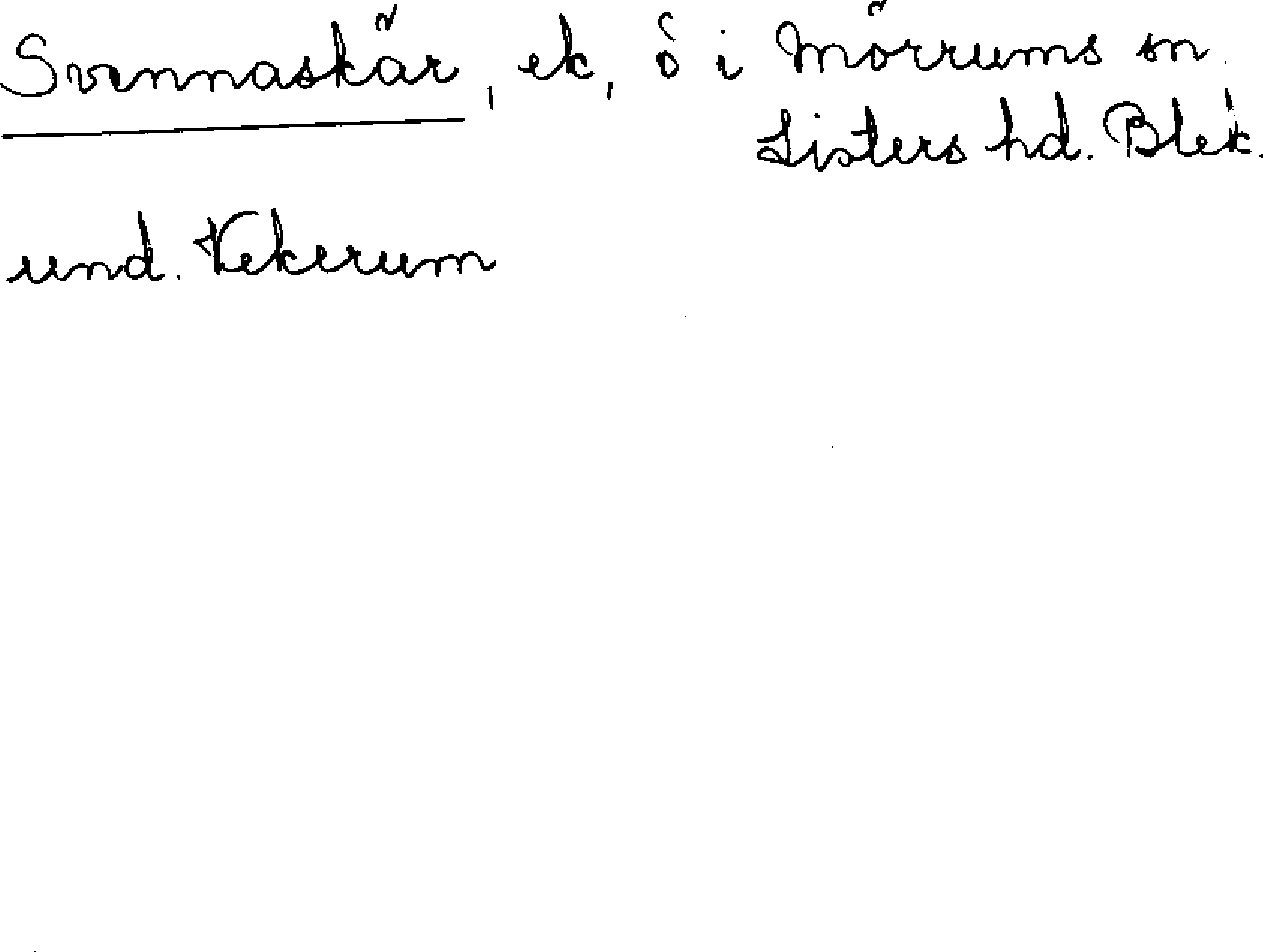 Svennaskär, ek, ö i Mörrums sn.
Listers hd. Blek.
und. Vekerum